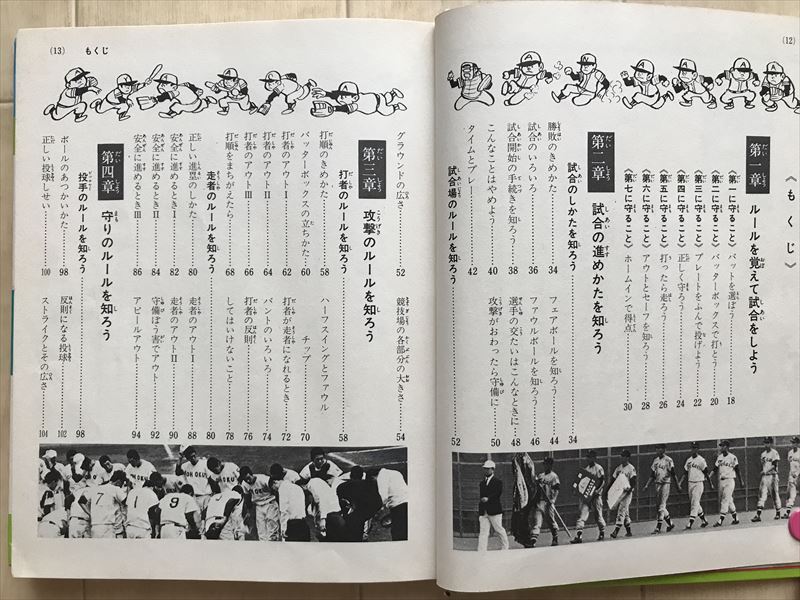 (12)
《もくじ》
第一章 ルールを覚えて試合をしよう
〈第一に守ること〉 バットを選ぼう 18
〈第二に守ること〉 バッターボックスで打とう 20
〈第三に守ること〉 プレートをふんで投げよう 22
〈第四に守ること〉 正しく守ろう 24
〈第五に守ること〉 打ったら走ろう 26
〈第六に守ること〉 アウトとセーフを知ろう 28
〈第七に守ること〉 ホームインで得点 30
第二章 試合の進めかたを知ろう
試合のしかたを知ろう 34
勝敗のきめかた 34
フェアボールを知ろう 44
試合のいろいろ 36
ファウルボールを知ろう 46
試合開始の手続きを知ろう 38
選手の交たいはこんなときに 48
こんなことはやめよう 40
攻撃がおわったら守備に 50
タイムとプレー 42
試合場のルールを知ろう 52
(13) もくじ
グラウンドの広さ 52
競技場の各部分の大きさ 54
第三章 攻撃のルールを知ろう
打者のルールを知ろう 58
打順のきめかた 58
ハーフスイングとファウルチップ 70
バッターボックスの立ちかた 60
打者のアウトⅠ 62
打者が走者になれるとき 72
打者のアウトⅡ 64
バントのいろいろ 74
打者のアウトⅢ 66
打者の反則 76
打順をまちがえたら 68
してはいけないこと 78
走者のルールを知ろう 80
正しい進塁のしかた 80
走者のアウトⅠ 88
安全に進めるときⅠ 82
走者のアウトⅡ 90
安全に進めるときⅡ 84
守備ぼう害でアウト 92
安全に進めるときⅢ 86
アピールアウト 94
第四章 守りのルールを知ろう
投手のルールを知ろう 98
ボールのあつかいかた 98
反則になる投球 102
正しい投球しせい 100
ストライクとその広さ 104